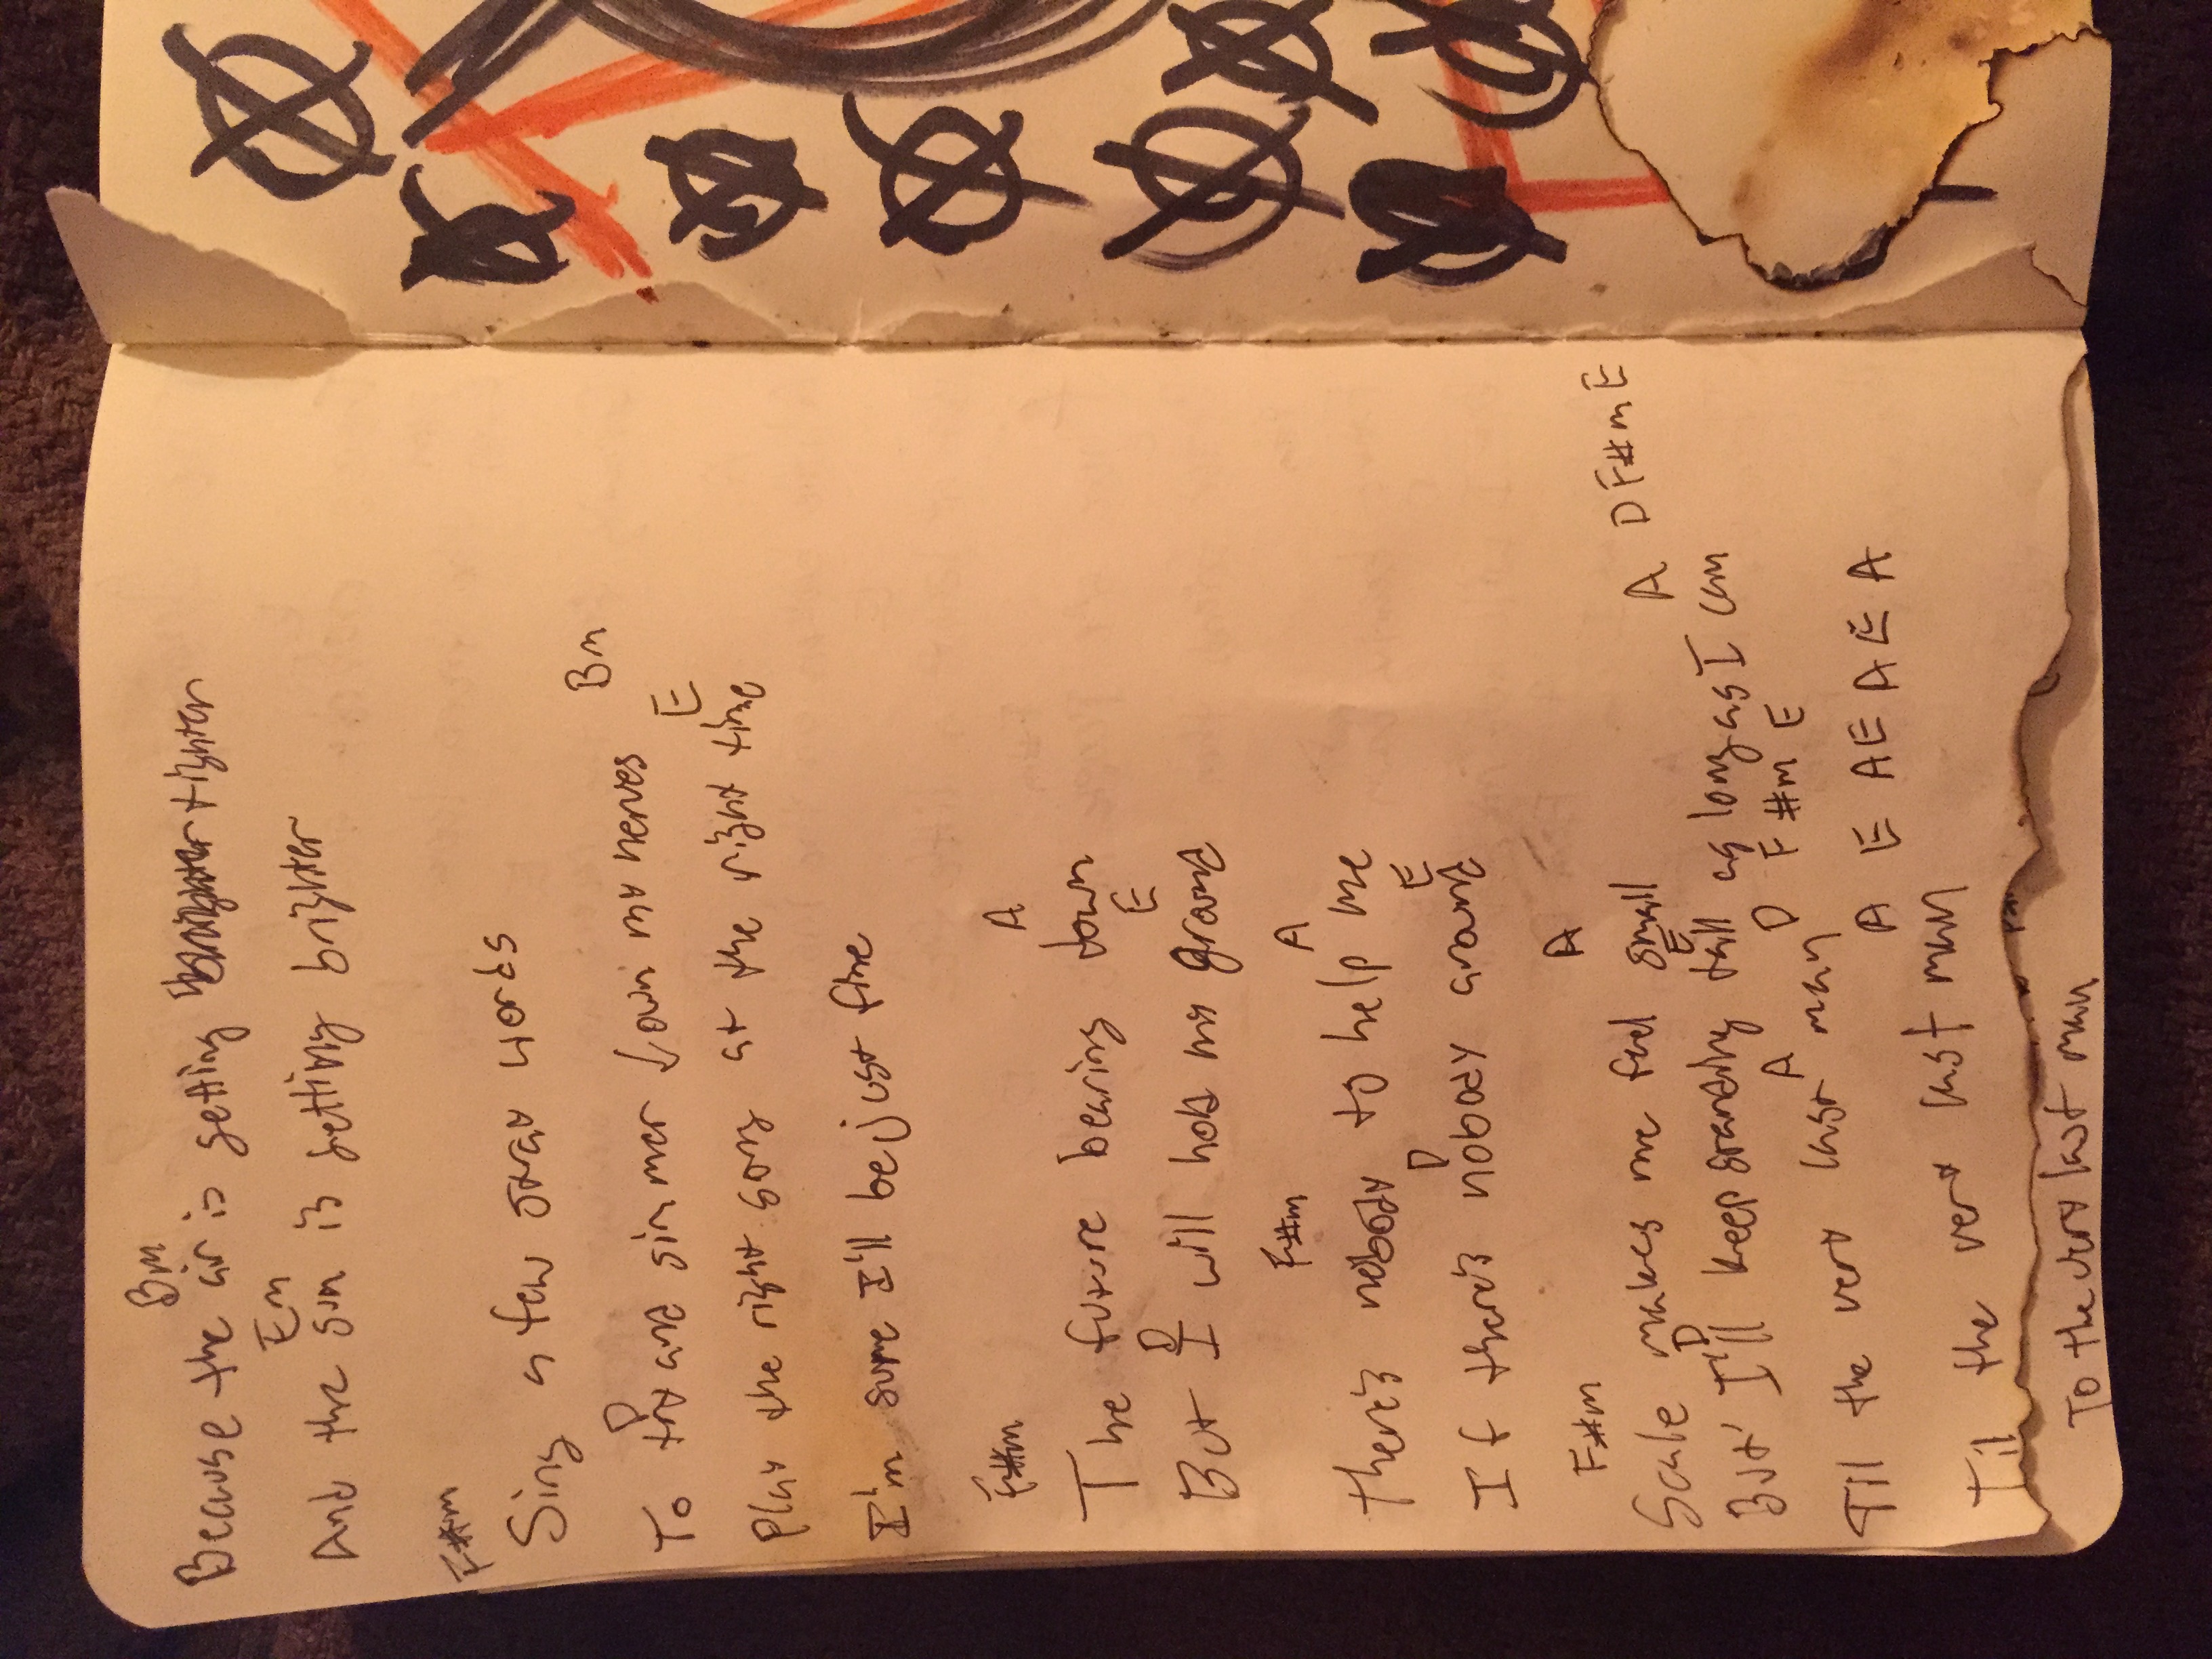 Bm
Because the air is getting tighter
Em
And the sun is getting brighter
F#m
Sing a few stray words
Bm
To try and simmer down my nerves
D E
Play the right song at the right time
I'm sure I'll be just fine
F#m A
The future bearing down
D E
But I will hold my ground
F#m A
there's nobody to help me
D E
If there's nobody around
F#m A
Scale makes me feel small
D E A D F#m E
But I'll keep standing tall as long as I can
A D F#m E
Til the very last man
A E AE A E A
Til the very last man
To the very last man